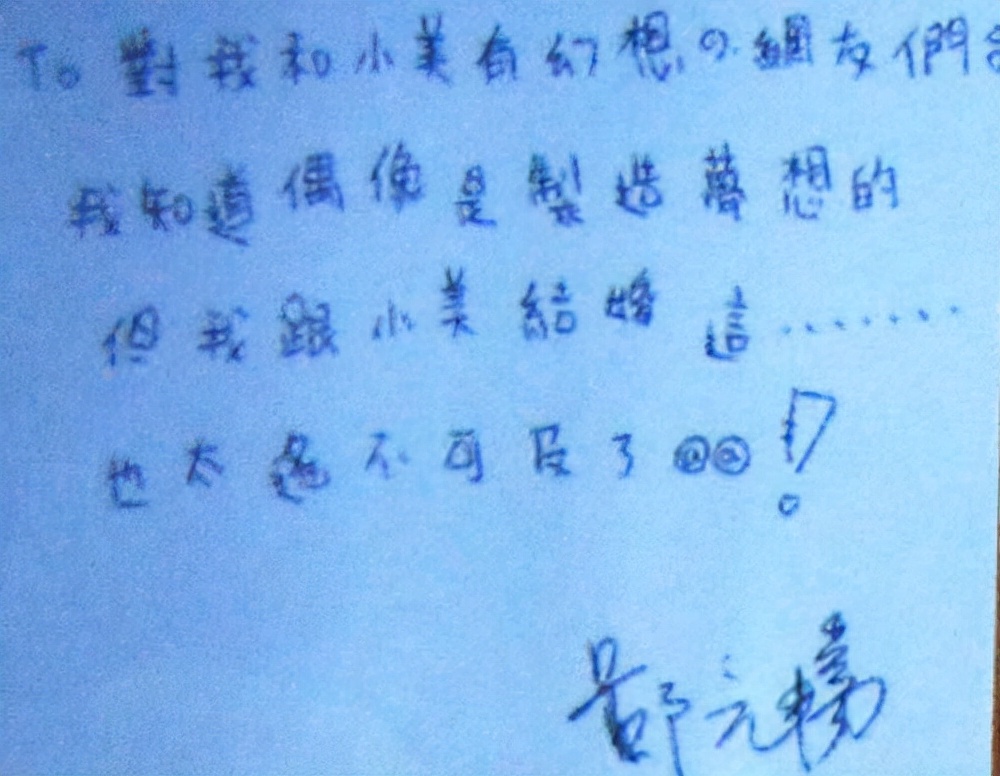 To 對我和小美有幻想の網友們
我知道偶像是製造夢想的
但我跟小美結婚這........
也太遙不可及了@@!
鄒元暢